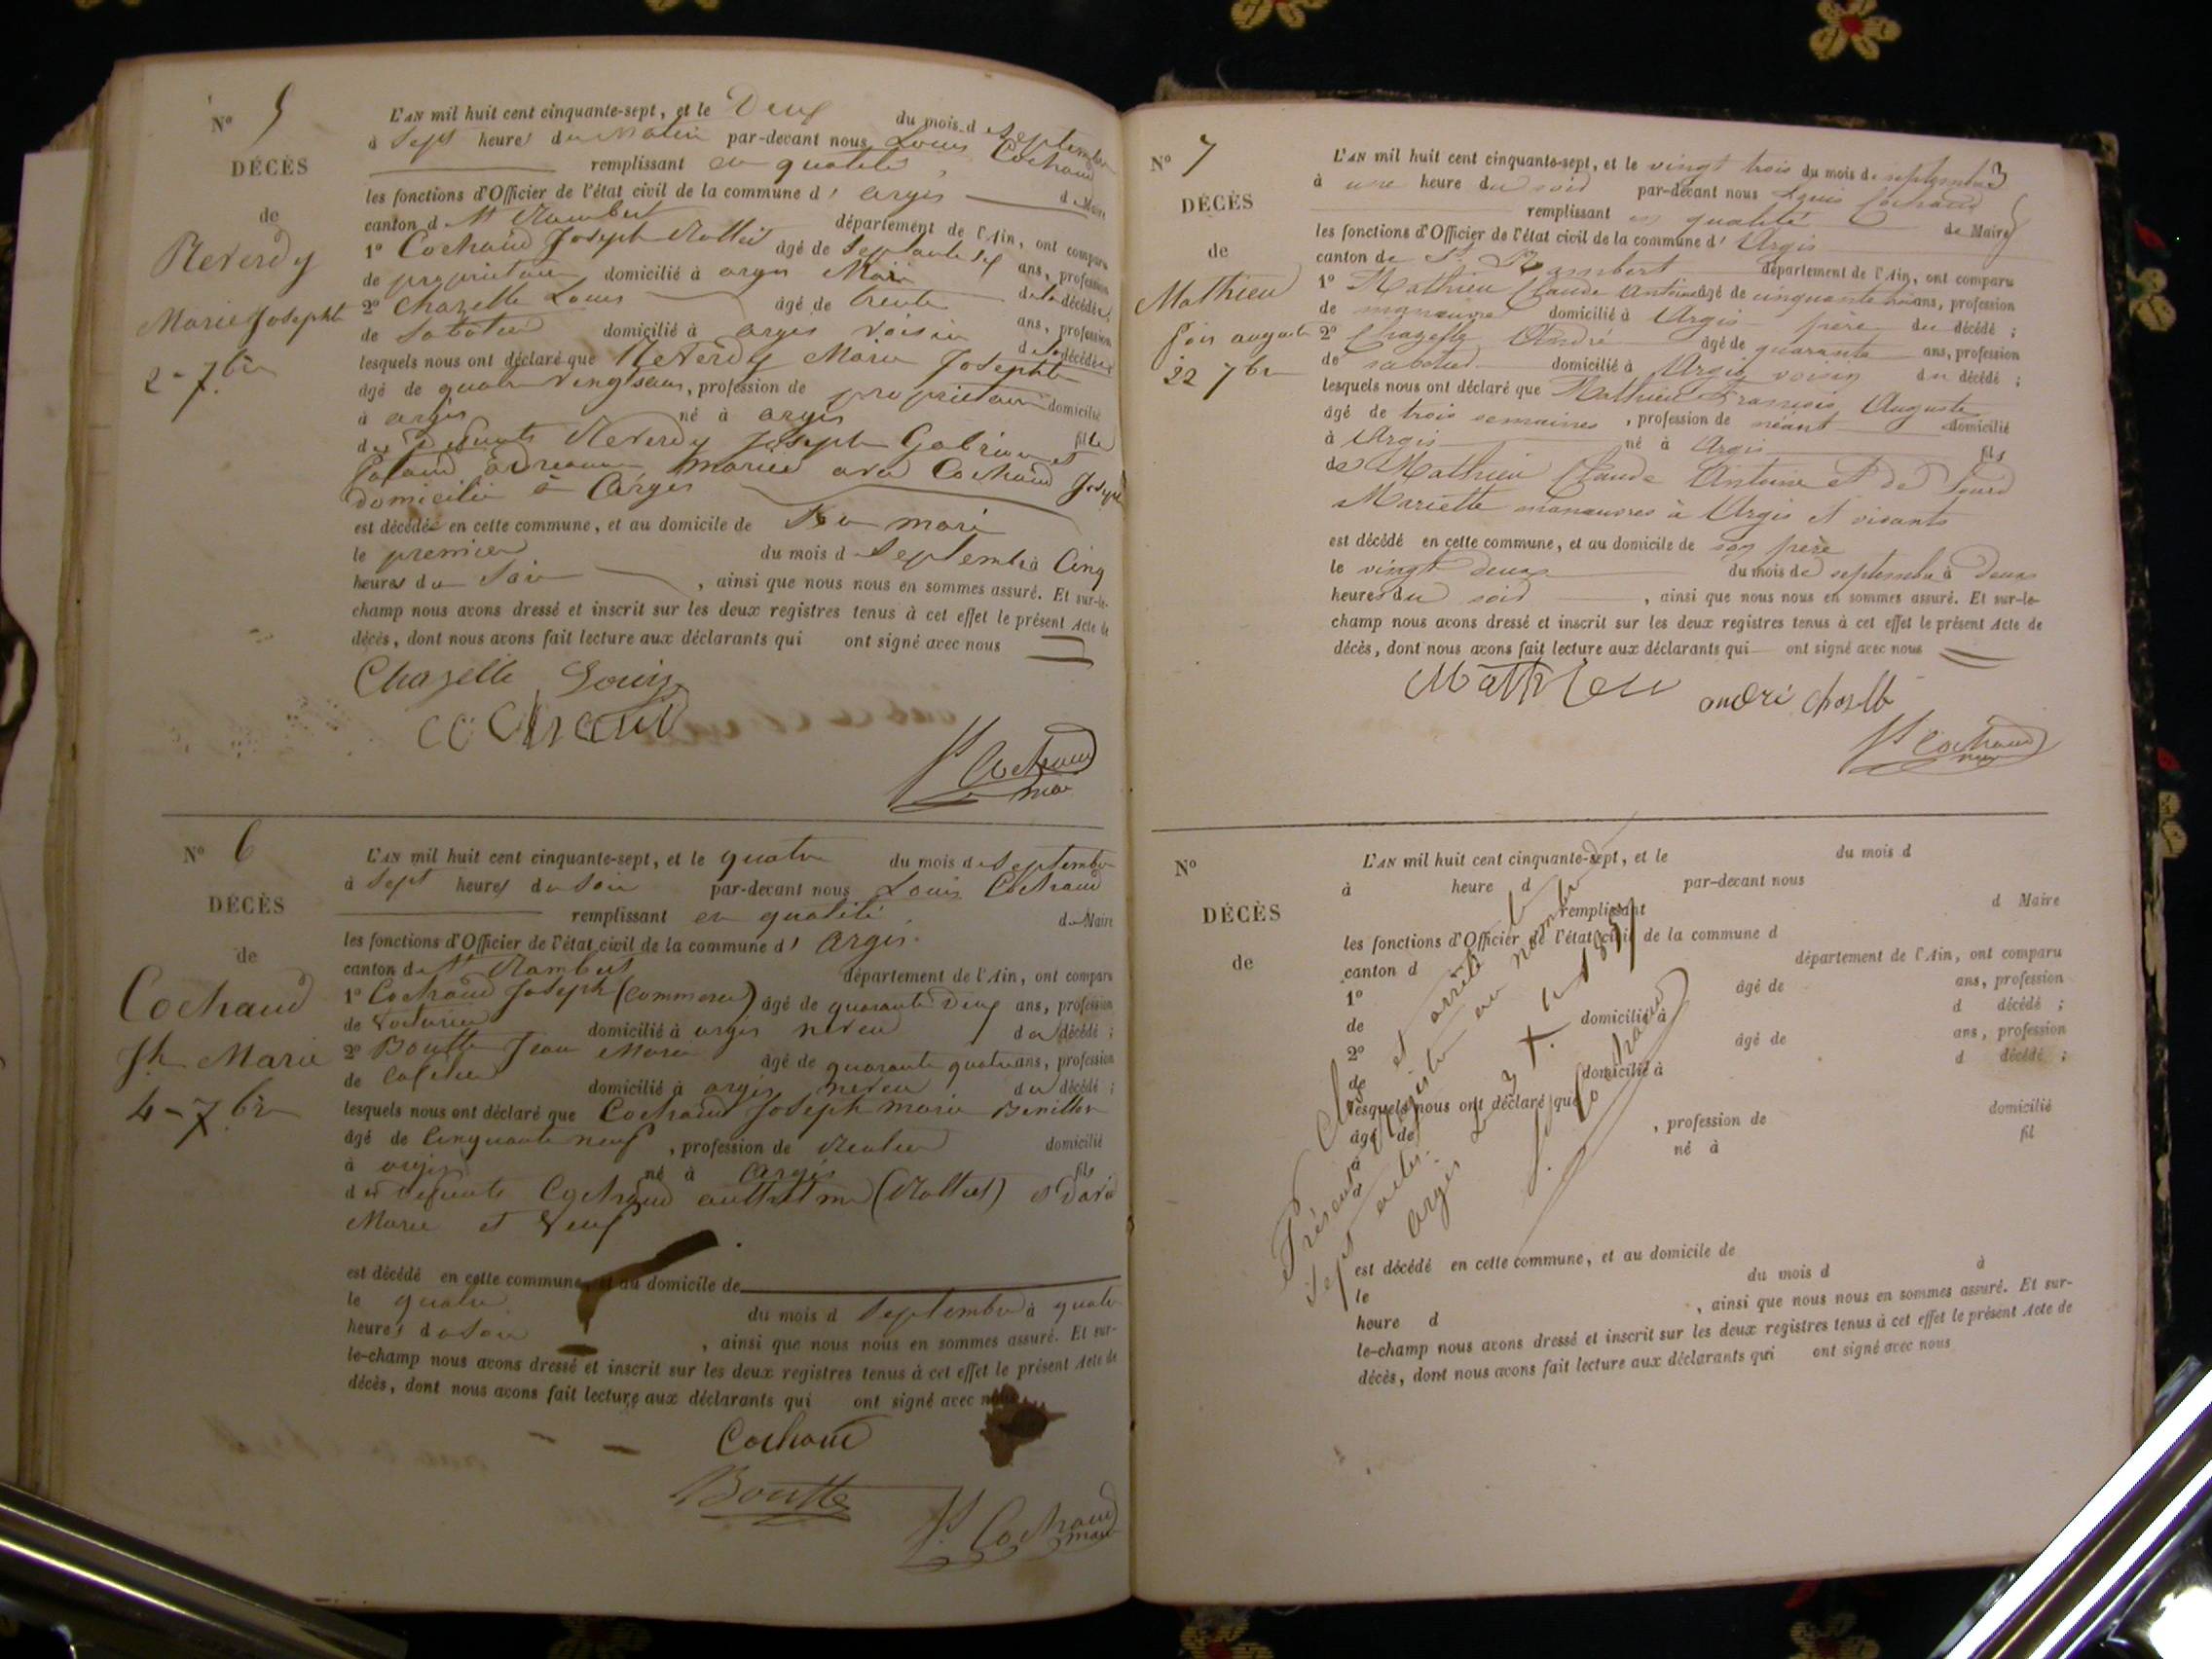 N° 5
DÉCÈS
de
Reverdy
Marie Josephte
2 - 7bre
L'AN mil huit cent cinquante-sept, et le Deux du mois d septembre
à sept heures du Matin par-devant nous Louis Cochaud
remplissant en qualité de Maire
les fonctions d'Officier de l'état civil de la commune d' arges
canton de St Rambert département de l'Ain, ont comparu
1° Cochaud Joseph âgé de septante six ans, profession
de proprietaire domicilié à arges Mari de la décédée,
2° Chazelle Louis âgé de trente ans, profession
de Sabotier domicilié à arges voisin de la décédée
lesquels nous ont déclaré que Reverdy Marie Josephte
âgé de quatre vingts ans, profession de proprietaire domicilié
à arges né à arges fille
des Defunts Reverdy Joseph Gabriel et
mariée avec Cochaud Joseph
domicilié à arges
est décédée en cette commune, et au domicile de Son mari
le premier du mois d Septembre à Cinq
heures du Soir , ainsi que nous nous en sommes assuré. Et sur-le-
champ nous avons dressé et inscrit sur les deux registres tenus à cet effet le présent Acte de
décès, dont nous avons fait lecture aux déclarants qui ont signé avec nous
Chazelle Louis
cochaud
Ls Cochaud
maire
N° 6
DÉCÈS
de
Cochaud
Jh Marie
4 - 7bre
L'AN mil huit cent cinquante-sept, et le quatre du mois de Septembre
à Sept heures du Soir par-devant nous Louis Cochaud
remplissant en qualité de Maire
les fonctions d'Officier de l'état civil de la commune d' Arges
canton de St Rambert département de l'Ain, ont comparu
1° Cochaud Joseph (Commerce) âgé de quarante Deux ans, profession
de voiturier domicilié à arges neveu du décédé ;
2° Boutte Jean Marie âgé de quarante quatre ans, profession
de domicilié à arges neveu du décédé ;
lesquels nous ont déclaré que Cochaud Joseph marie
âgé de Cinquante neuf , profession de Rentier domicilié
à arges né à Arges fils
des defunts Cochaud
Marie et Veuf
est décédé en cette commune, et au domicile de
le quatre du mois d Septembre à quatre
heures du Soir , ainsi que nous nous en sommes assuré. Et sur-
le-champ nous avons dressé et inscrit sur les deux registres tenus à cet effet le présent Acte de
décès, dont nous avons fait lecture aux déclarants qui ont signé avec nous
Cochaud
Boutte
Ls Cochaud
maire
N° 7
DÉCÈS
de
Mathieu
fois auguste
22 7bre
L'AN mil huit cent cinquante-sept, et le vingt trois du mois de septembre
à une heure du soir par-devant nous Louis Cochaud
remplissant en qualité de Maire
les fonctions d'Officier de l'état civil de la commune d' Argis
canton de St Rambert département de l'Ain, ont comparu
1° Mathieu Claude Antoine âgé de cinquante ans, profession
de manœuvre domicilié à Argis père du décédé ;
2° Chazelle André âgé de quarante ans, profession
de sabotier domicilié à Argis voisin du décédé ;
lesquels nous ont déclaré que Mathieu François Auguste
âgé de trois semaines , profession de néant domicilié
à Argis né à Argis fils
de Mathieu Claude Antoine et de
Mariette manœuvres à Argis et vivants
est décédé en cette commune, et au domicile de son père
le vingt deux du mois de septembre à deux
heures du soir , ainsi que nous nous en sommes assuré. Et sur-le-
champ nous avons dressé et inscrit sur les deux registres tenus à cet effet le présent Acte de
décès, dont nous avons fait lecture aux déclarants qui ont signé avec nous
Mathieu andré chaselle
Ls Cochaud
maire
N°
DÉCÈS
de
L'AN mil huit cent cinquante-sept, et le du mois d
à heure d par-devant nous
remplissant d Maire
les fonctions d'Officier de l'état civil de la commune d
canton d département de l'Ain, ont comparu
1° âgé de ans, profession
de domicilié à d décédé ;
2° âgé de ans, profession
de domicilié à d décédé ;
lesquels nous ont déclaré que
âgé de , profession de domicilié
à né à fil
d
est décédé en cette commune, et au domicile de
le du mois d à
heure d , ainsi que nous nous en sommes assuré. Et sur-
le-champ nous avons dressé et inscrit sur les deux registres tenus à cet effet le présent Acte de
décès, dont nous avons fait lecture aux déclarants qui ont signé avec nous
Clos et arrêté le
Présent Registre au nombre de
Sept actes.
Argis 1857
Ls Cochaud